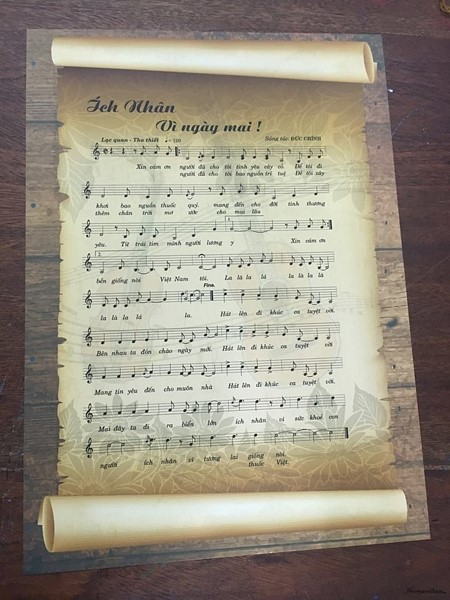 Ích Nhân
Vì ngày mai !
Lạc quan - Tha thiết ♩= 110 Sáng tác: ĐỨC CHÍNH
Xin cảm ơn người đã cho tôi tình yêu này cố Để tôi đi
người đã cho tôi bao nguồn trí tuệ Để tôi xây
khơi bao nguồn thuốc quý. mang đến cho đời tình thương
thêm chân trời mơ ước cho mai lâu
yêu. Từ trái tim mình người lương y Xin cảm ơn
bền giống nòi Việt Nam tôi. La là la lá la là la lá
Fine.
la là la lá la. Hát lên đi khúc ca tuyệt vời.
Bên nhau ta đón chào ngày mới. Hát lên đi khúc ca tuyệt vời
Mang tin yêu đến cho muôn nhà Hát lên đi khúc ca tuyệt vời.
Mai đây ta đi ra biển lớn ích nhân vì sức khoẻ con
người ích nhân vì tương lai giống nòi.
thuốc Việt.